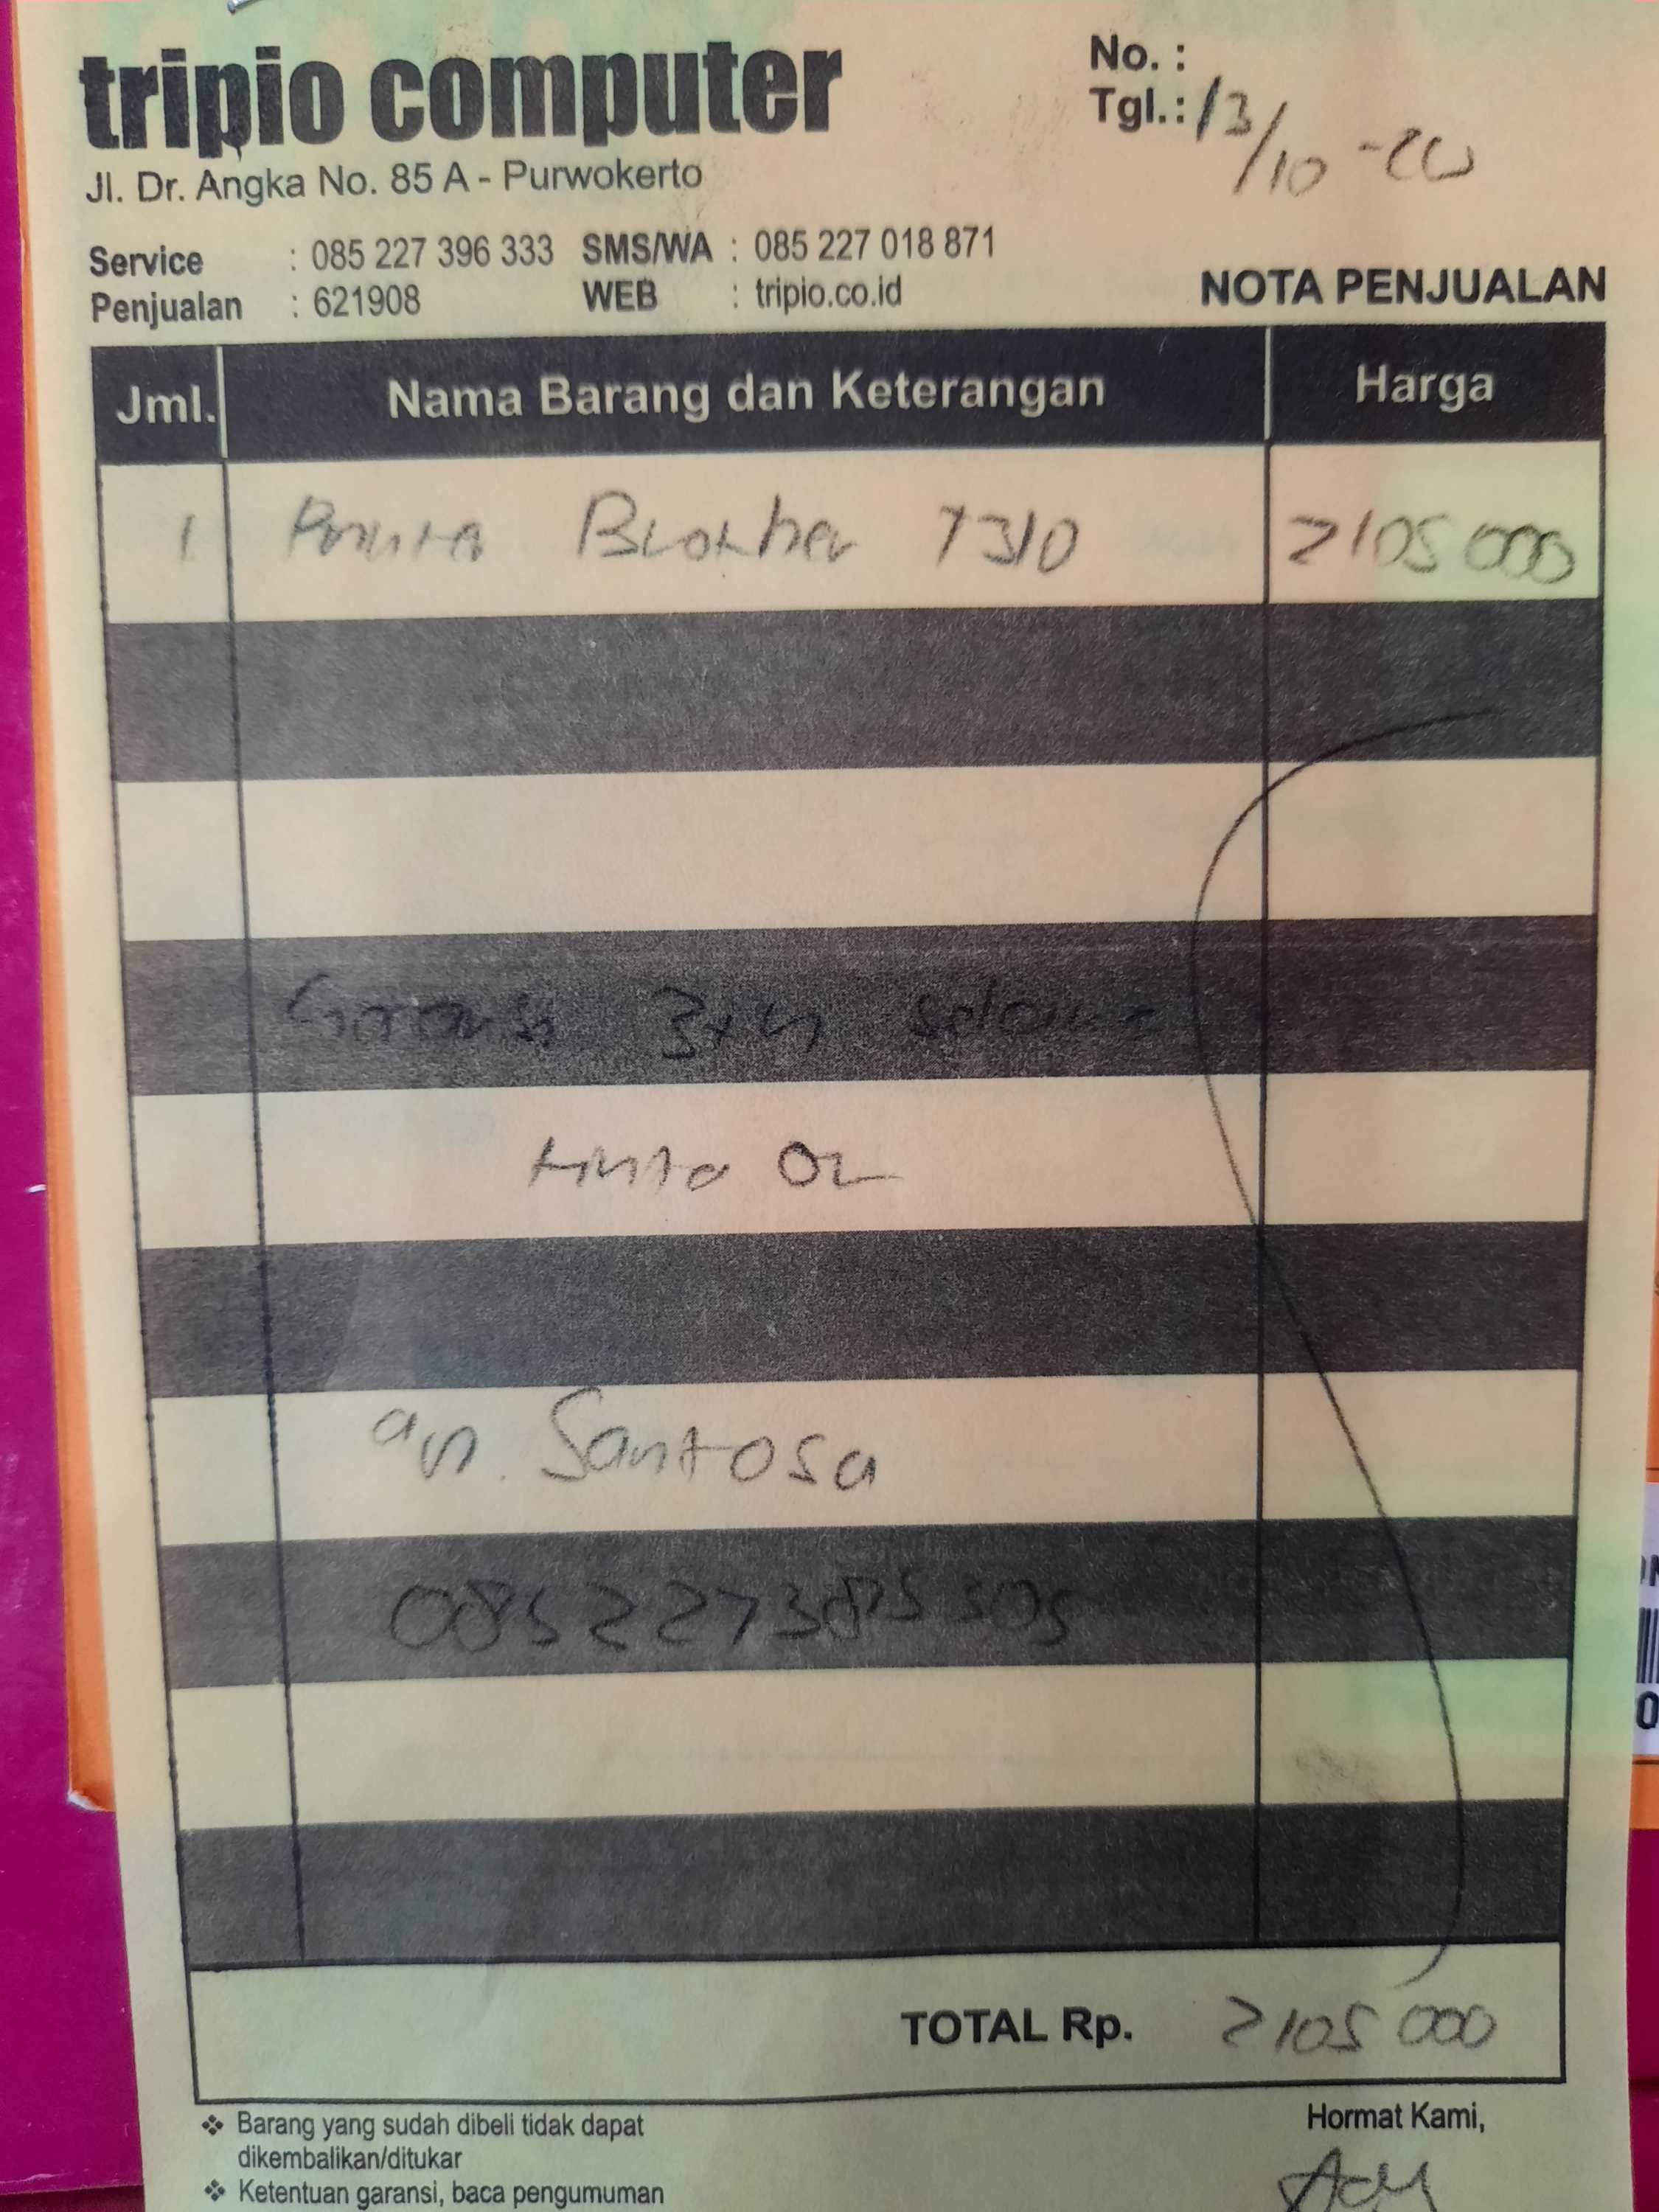 tripio computer
Jl. Dr. Angka No. 85 A - Purwokerto
No. :
Tgl. : 13/10 -20
Service : 085 227 396 333 SMS/WA : 085 227 018 871
Penjualan : 621908 WEB : tripio.co.id
NOTA PENJUALAN
Jml. Nama Barang dan Keterangan Harga
1 Printer Brother T310 2105 000
Garansi 3th selama
tinta Ori
a/n. Santosa
TOTAL Rp. 2105 000
❖ Barang yang sudah dibeli tidak dapat
dikembalikan/ditukar
❖ Ketentuan garansi, baca pengumuman
Hormat Kami,